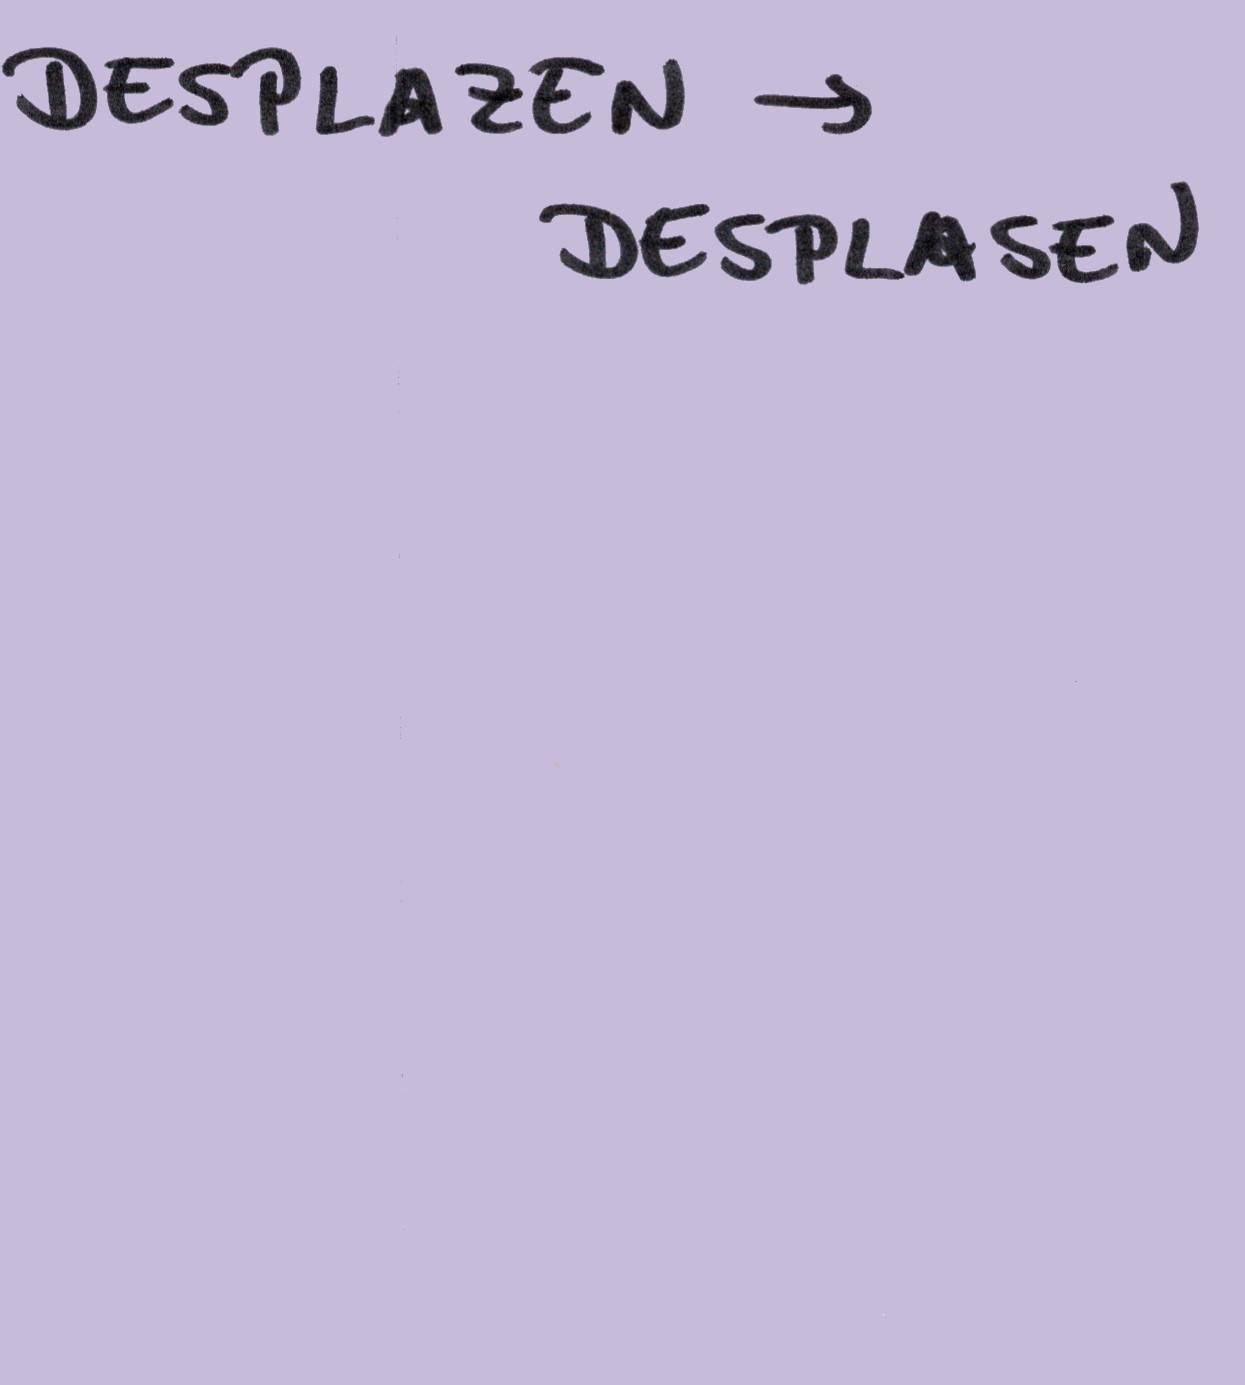 DESPLAZEN →
DESPLASEN